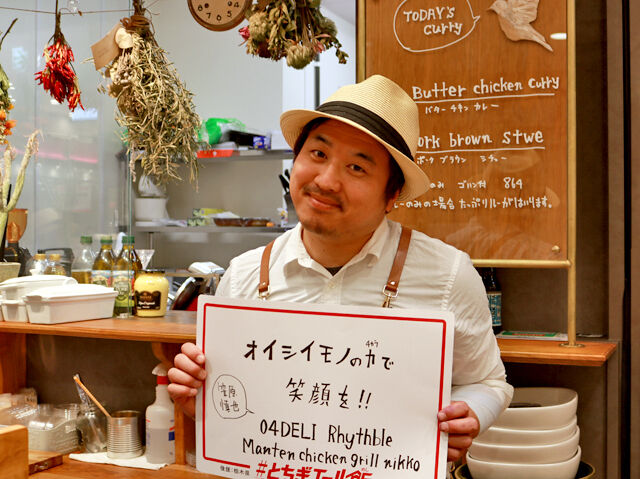 TODAY'S
curry
Butter chicken curry
バターチキンカレー
ork brown stwe
ポークブラウンシチュー
のみ ゴハン付 864
のみの場合 たっぷりルーがはいります。
オイシイモノの力で
チカラ
笑顔を!!
笹原
慎也
04DELI Rhythble
Manten chicken grill nikko
後援:栃木県 #とちぎエール飯